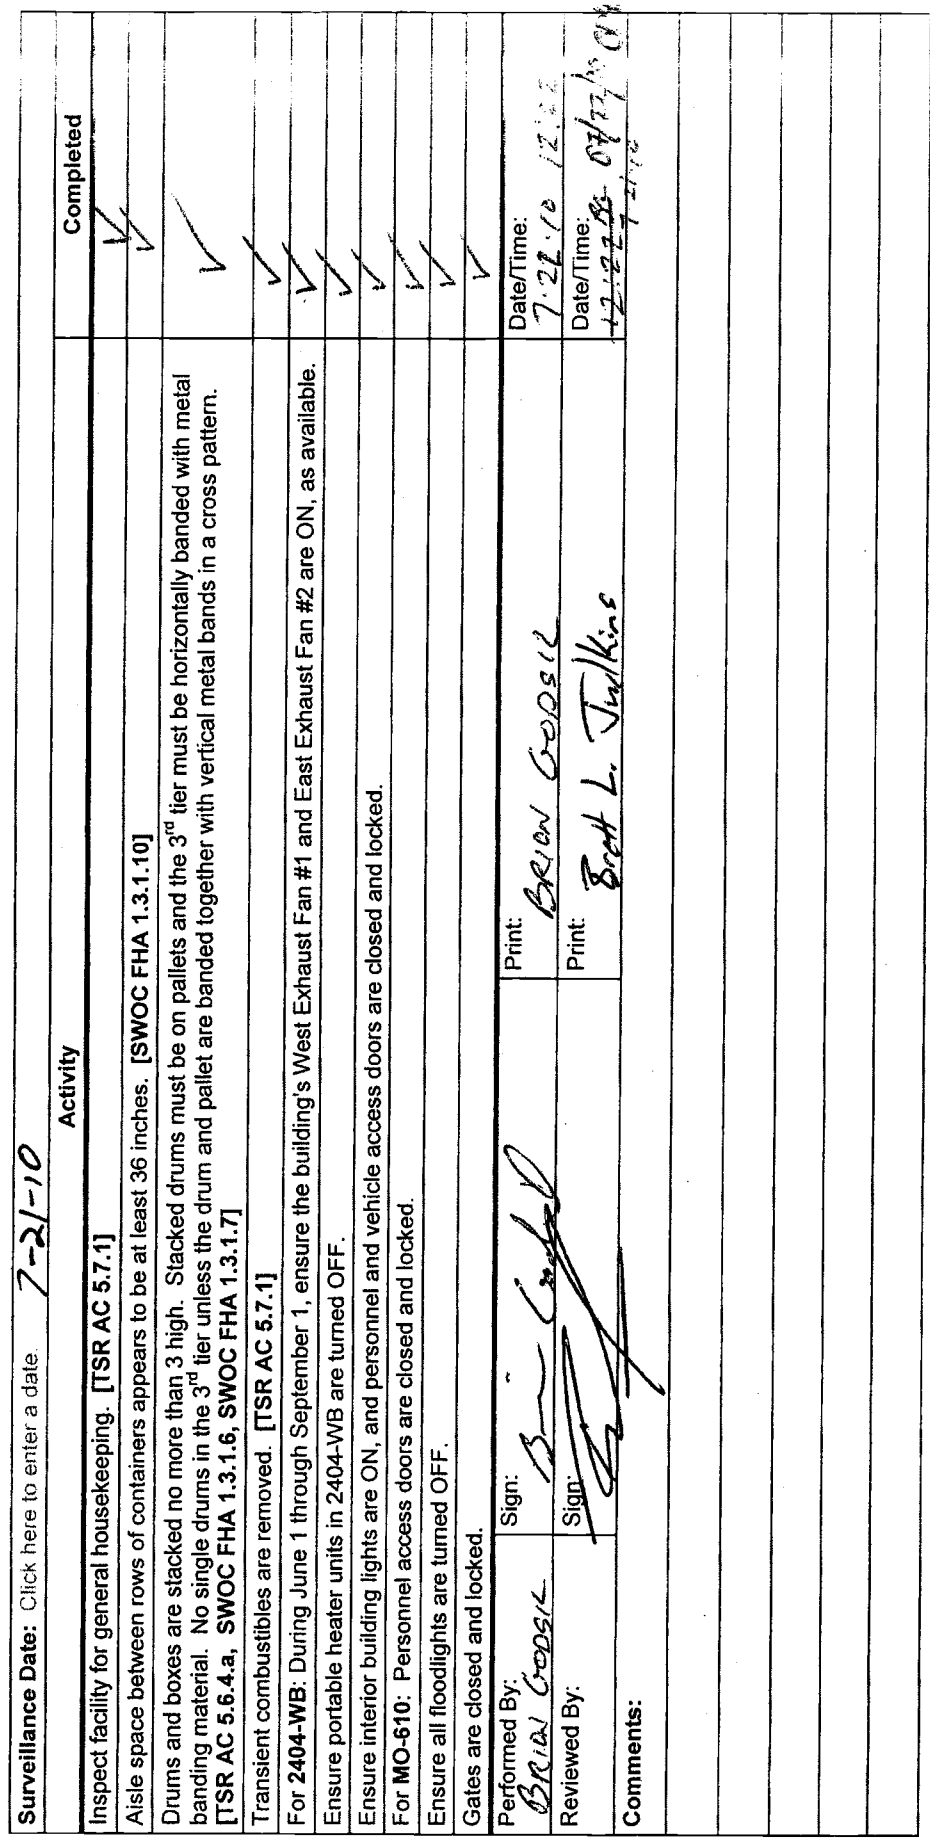 Surveillance Date: Click here to enter a date. 7-21-10
Activity Completed
Inspect facility for general housekeeping. [TSR AC 5.7.1] ✓
Aisle space between rows of containers appears to be at least 36 inches. [SWOC FHA 1.3.1.10] ✓
Drums and boxes are stacked no more than 3 high. Stacked drums must be on pallets and the 3rd tier must be horizontally banded with metal
banding material. No single drums in the 3rd tier unless the drum and pallet are banded together with vertical metal bands in a cross pattern.
[TSR AC 5.6.4.a, SWOC FHA 1.3.1.6, SWOC FHA 1.3.1.7] ✓
Transient combustibles are removed. [TSR AC 5.7.1] ✓
For 2404-WB: During June 1 through September 1, ensure the building's West Exhaust Fan #1 and East Exhaust Fan #2 are ON, as available. ✓
Ensure portable heater units in 2404-WB are turned OFF. ✓
Ensure interior building lights are ON, and personnel and vehicle access doors are closed and locked. ✓
For MO-610: Personnel access doors are closed and locked. ✓
Ensure all floodlights are turned OFF. ✓
Gates are closed and locked. ✓
Performed By: Sign: Print: Date/Time:
BRIAN GODSIL BRIAN GODSIL 12:22
Reviewed By: Sign: Print: Date/Time:
Brett L. Julkins 07/22/10
Comments: